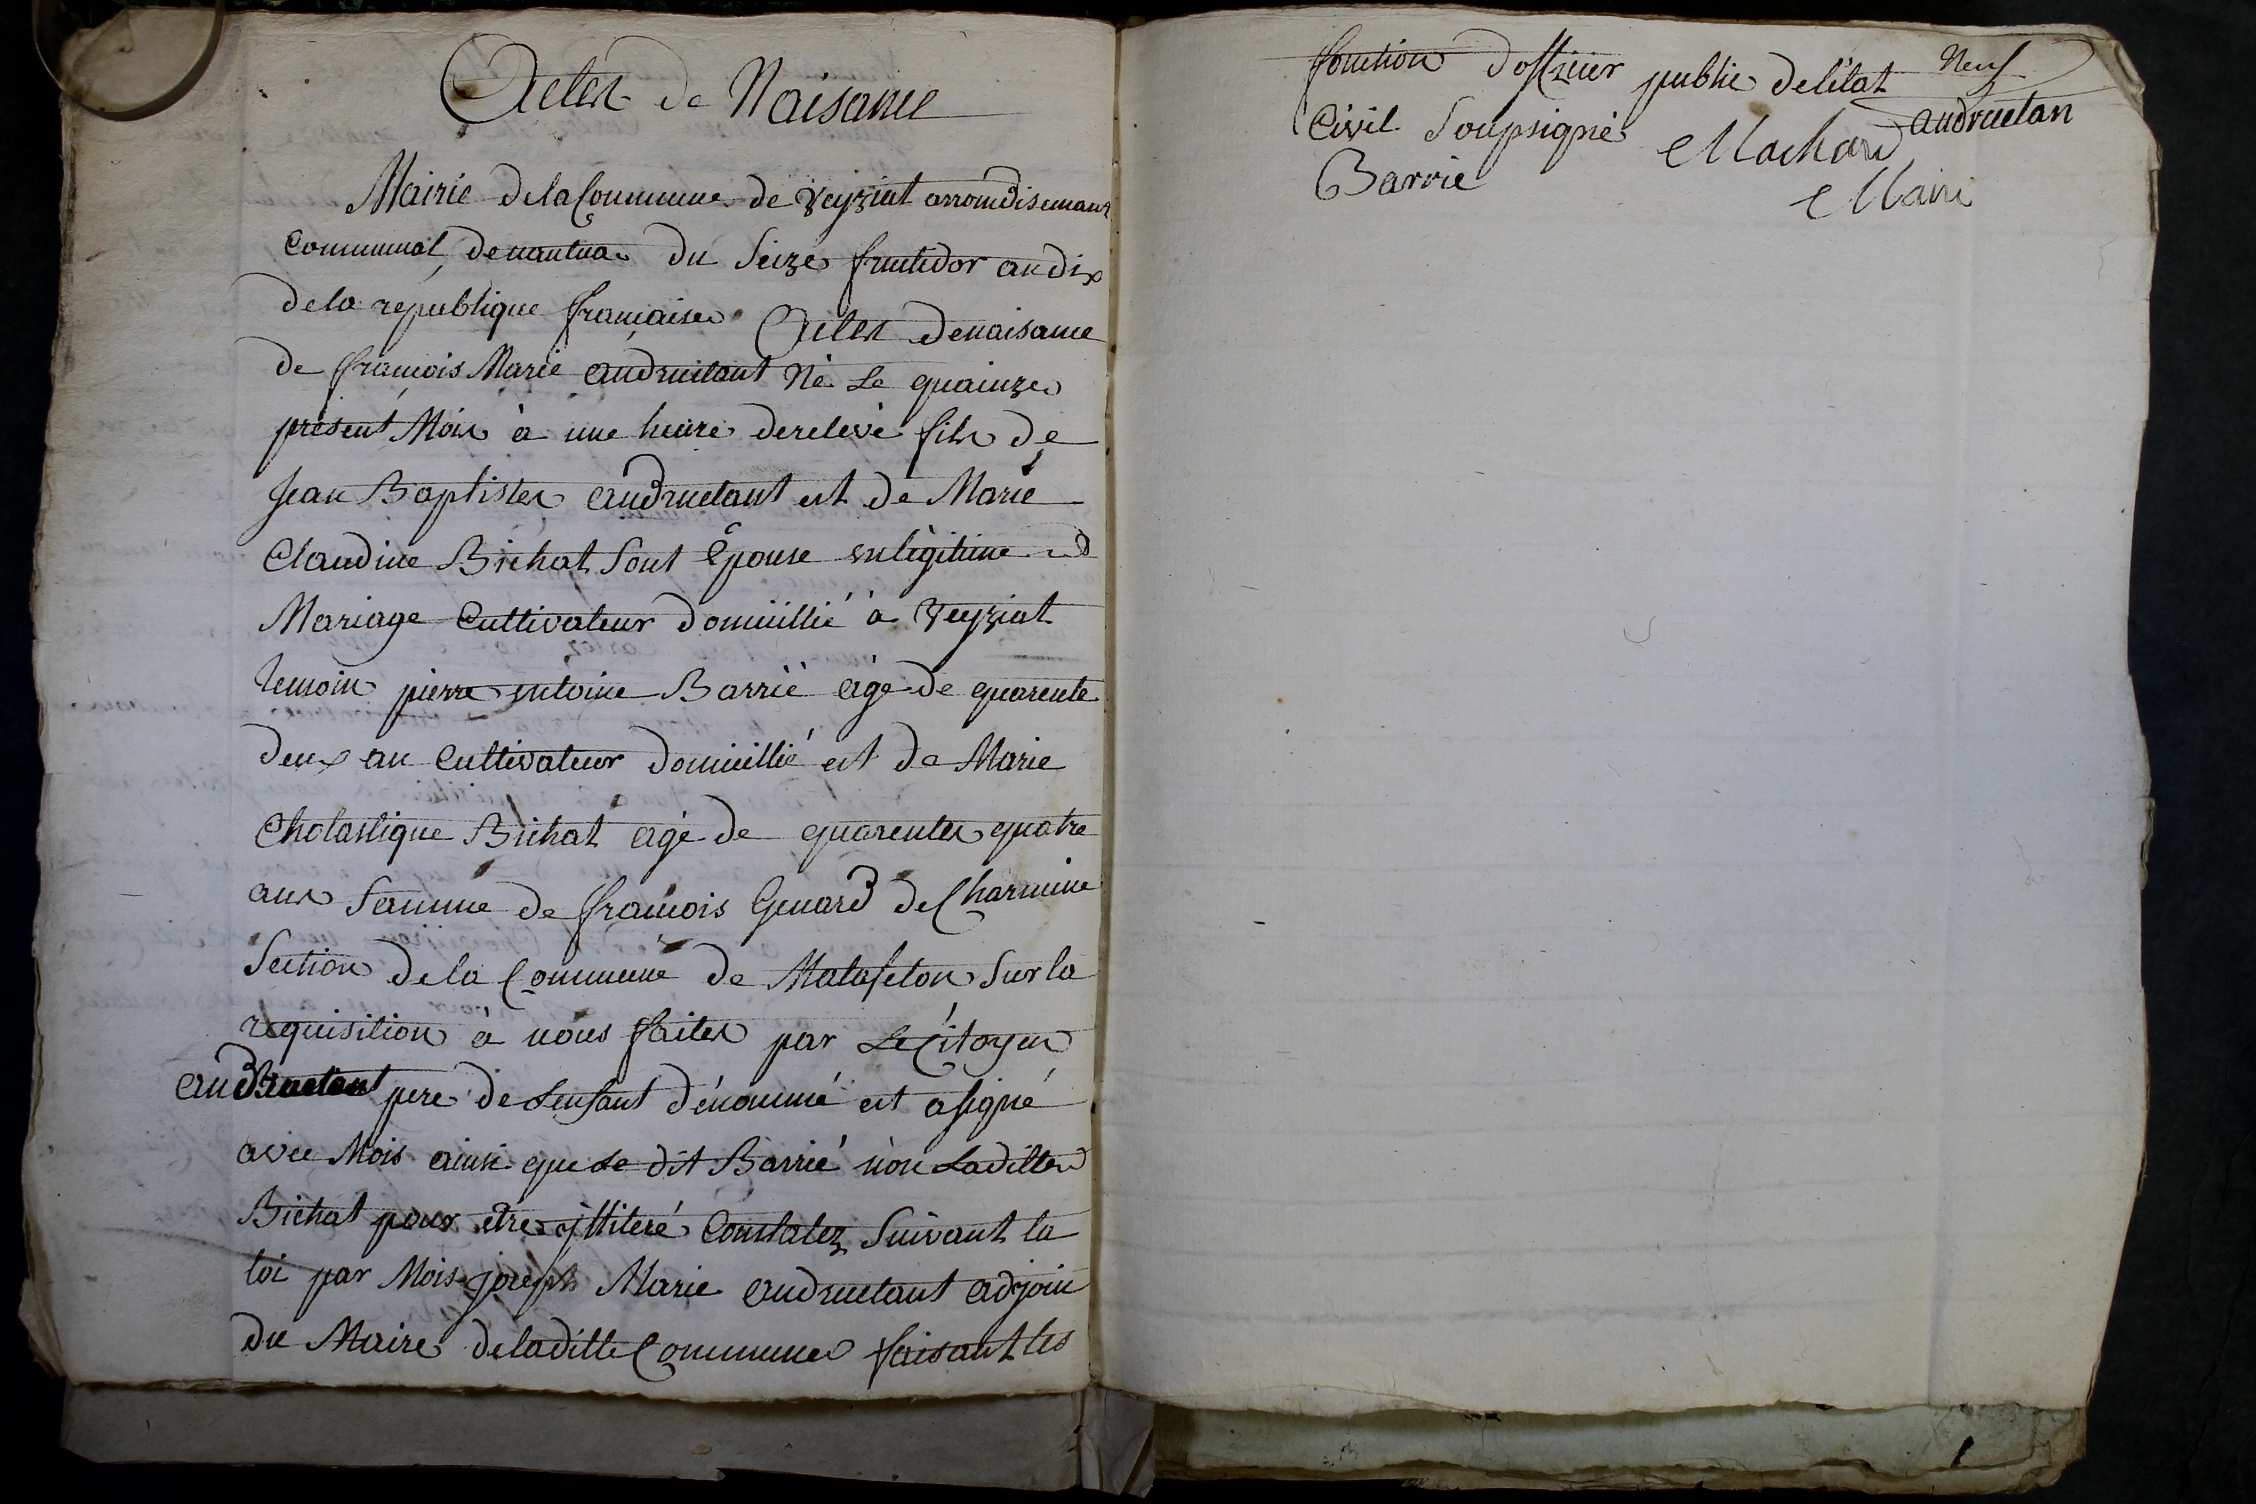 Actes de Naisance
Mairie de la Commune de Veyziat arrondisemant
Communal de nantua du seize fructidor an dix
de la republique francaise Actes de naisance
de francois Marie andructant Né Le quainze
présent Mois à une heure de relevé fils de
Jean Baptistes andructant est de Marie
Claudine Bichat Sont Epouse en legitime
Mariage Cultivateur domicillié à Veyziat
temoin pierre entoine Barrié agé de quarente
deux an Cultivateur domicillié est de Marie
Cholastique Bichat agé de quarentes quatre
ans famme de francois Genard de Charmine
Section de la Commune de Matafelon Sur la
requisition à nous faites par Le Citoyen
andructant pere de Lenfant dénommé est a signé
avec Mois ainsi que Le dit Barrié nòn La ditte
Bichat pour etre illiteré Constatez Suivant la
loi par Mois joseph Marie andructant adjoin
du Maire de la ditte Commune faisant les
fonction dofficier public de létat
Civil Soupsigné
Neuf
andructan
Barrié
Machard
Maire